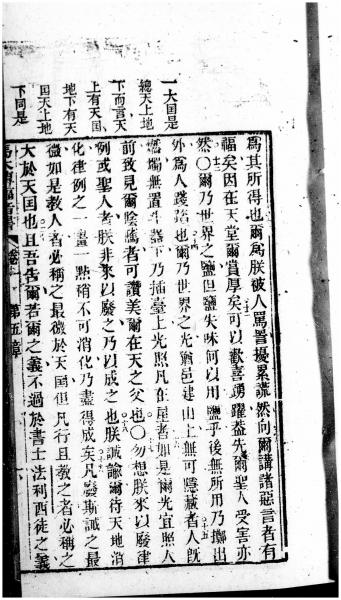 一大国是
緫天上地
下而言天
上有天国
地下有天
国天上地
下同是
爲其所得也爾爲朕被人罵詈擾累謊然向爾講諸惡言者有
福矣因在天堂爾賞厚矣可以歡喜踴躍葢先爾聖人受害亦
然〇爾乃世界之鹽但鹽失味何以用鹽乎後無所用乃擲出
外爲人踐踏也爾乃世界之光猶邑建山上無可隱藏者人旣
燃燭無置斗器下乃插臺上光照凡在屋者如是爾光宜照人
前致見爾陰騭者可讚美爾在天之父也〇勿想朕來以廢律
例或聖人者朕非來以廢之乃以成之也朕誠諭爾待天地消
化律例之一畫一點稍不可消化乃盡得成矣凡廢斯誡之最
微如是教人者必稱之最微於天国但凡行且教之者必稱之
大於天国也且吾告爾若爾之義不過於書士法利西徒之義
第五章